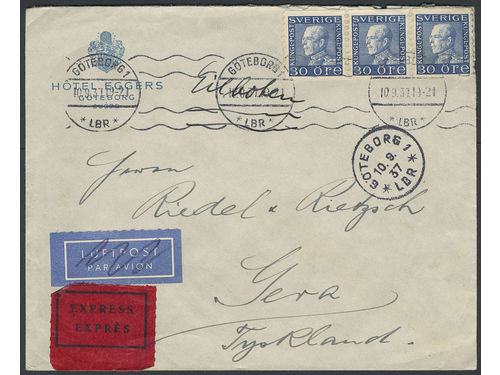 SVERIGE SVERIGE SVERIGE
KUNGLPOST KUNGLPOST KUNGLPOST
30 ÖRE 30 ÖRE 30 ÖRE
GÖTEBORG 1
LBR
HÔTEL EGGERS
GÖTEBORG
GÖTEBORG 1
LBR
10.9.37 19-21
LBR
Eilboten
GÖTEBORG 1
10.9.
37
* LBR *
Herrn
Riedel & Rietzsch
Gera
Tyskland.
LUFTPOST
PAR AVION
EXPRESS
EXPRÈS